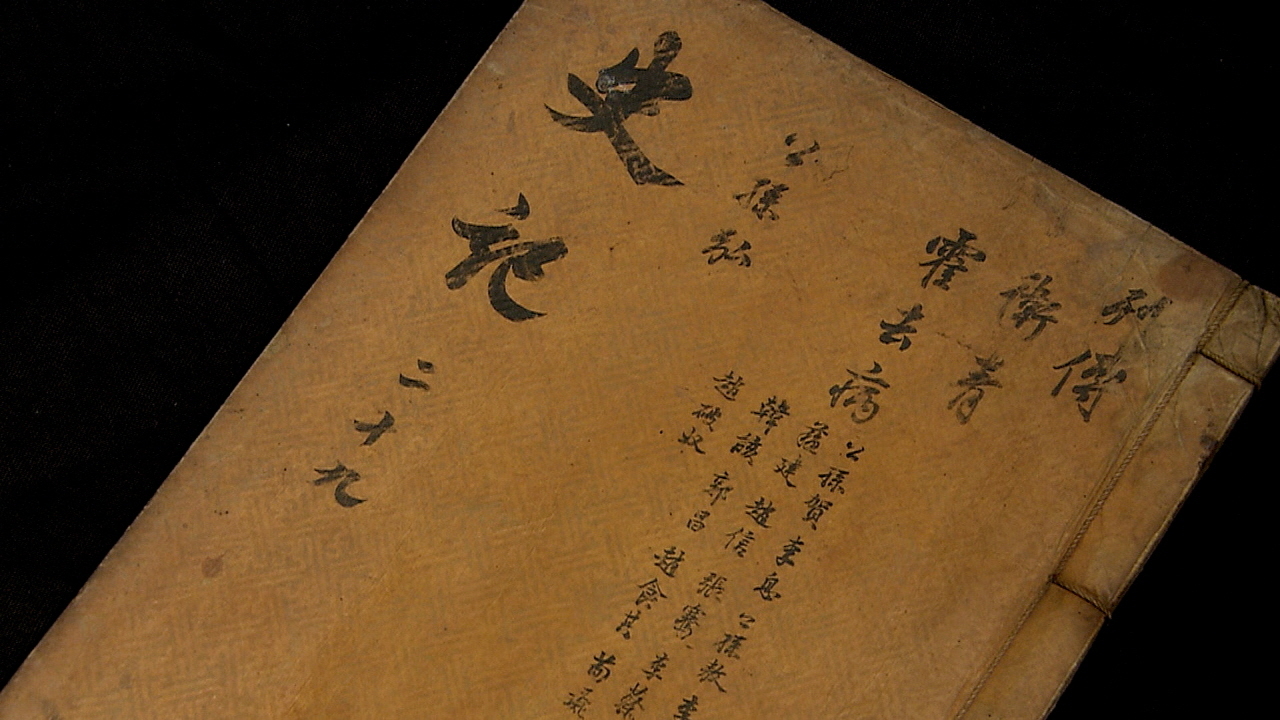 列傳
衛青
霍去病
公孫賀 李息 公孫敖 李
蘇建 趙信 張騫 李蔡
韓說 郭昌 趙食其 荀彘
趙破奴
公孫弘
史記 二十九